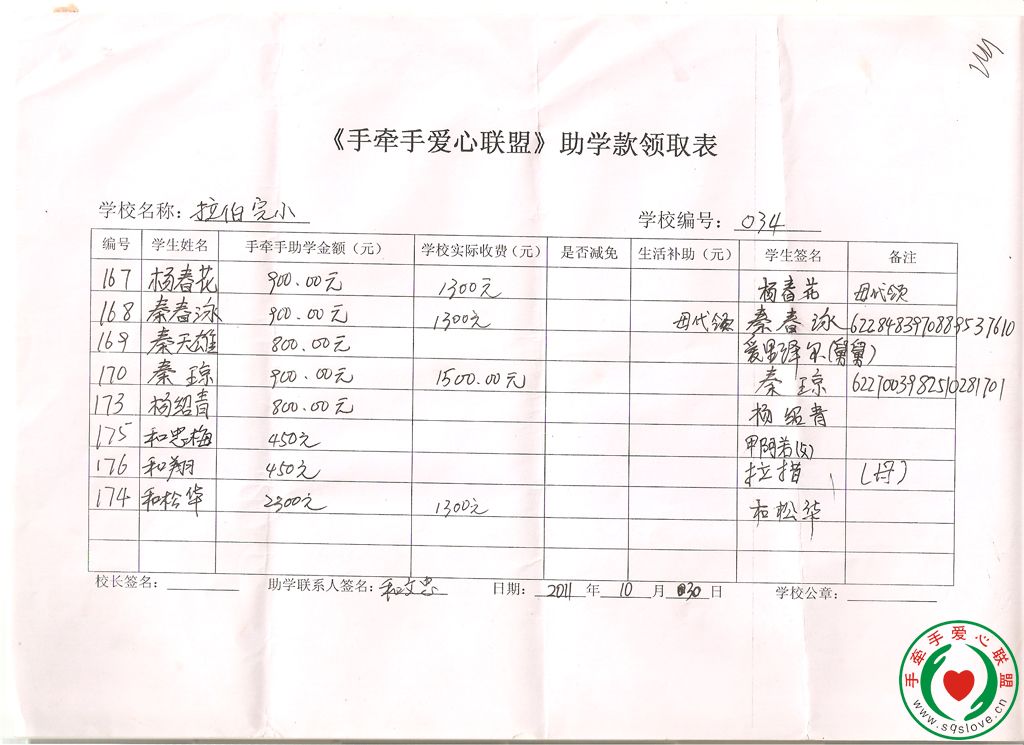 《手牵手爱心联盟》助学款领取表
学校名称：拉伯完小 学校编号：034
编号 学生姓名 手牵手助学金额（元） 学校实际收费（元） 是否减免 生活补助（元） 学生签名 备注
167 杨春花 900.00元 1300元 杨春花 母代领
168 秦春泳 900.00元 1300元 母代领 秦春泳 6228483970889537610
169 秦天雄 800.00元 (舅舅)
170 秦琼 900.00元 1500.00元 秦琼 6227003982510281701
173 杨绍青 800.00元 杨绍青
175 和忠梅 450元 甲阿若(父)
176 和翔 450元 拉措 (母)
174 和松华 2300元 1300元 和松华
校长签名： 助学联系人签名：和文忠 日期：2011年10月30日 学校公章：
手牵手爱心联盟
www.sqslove.cn